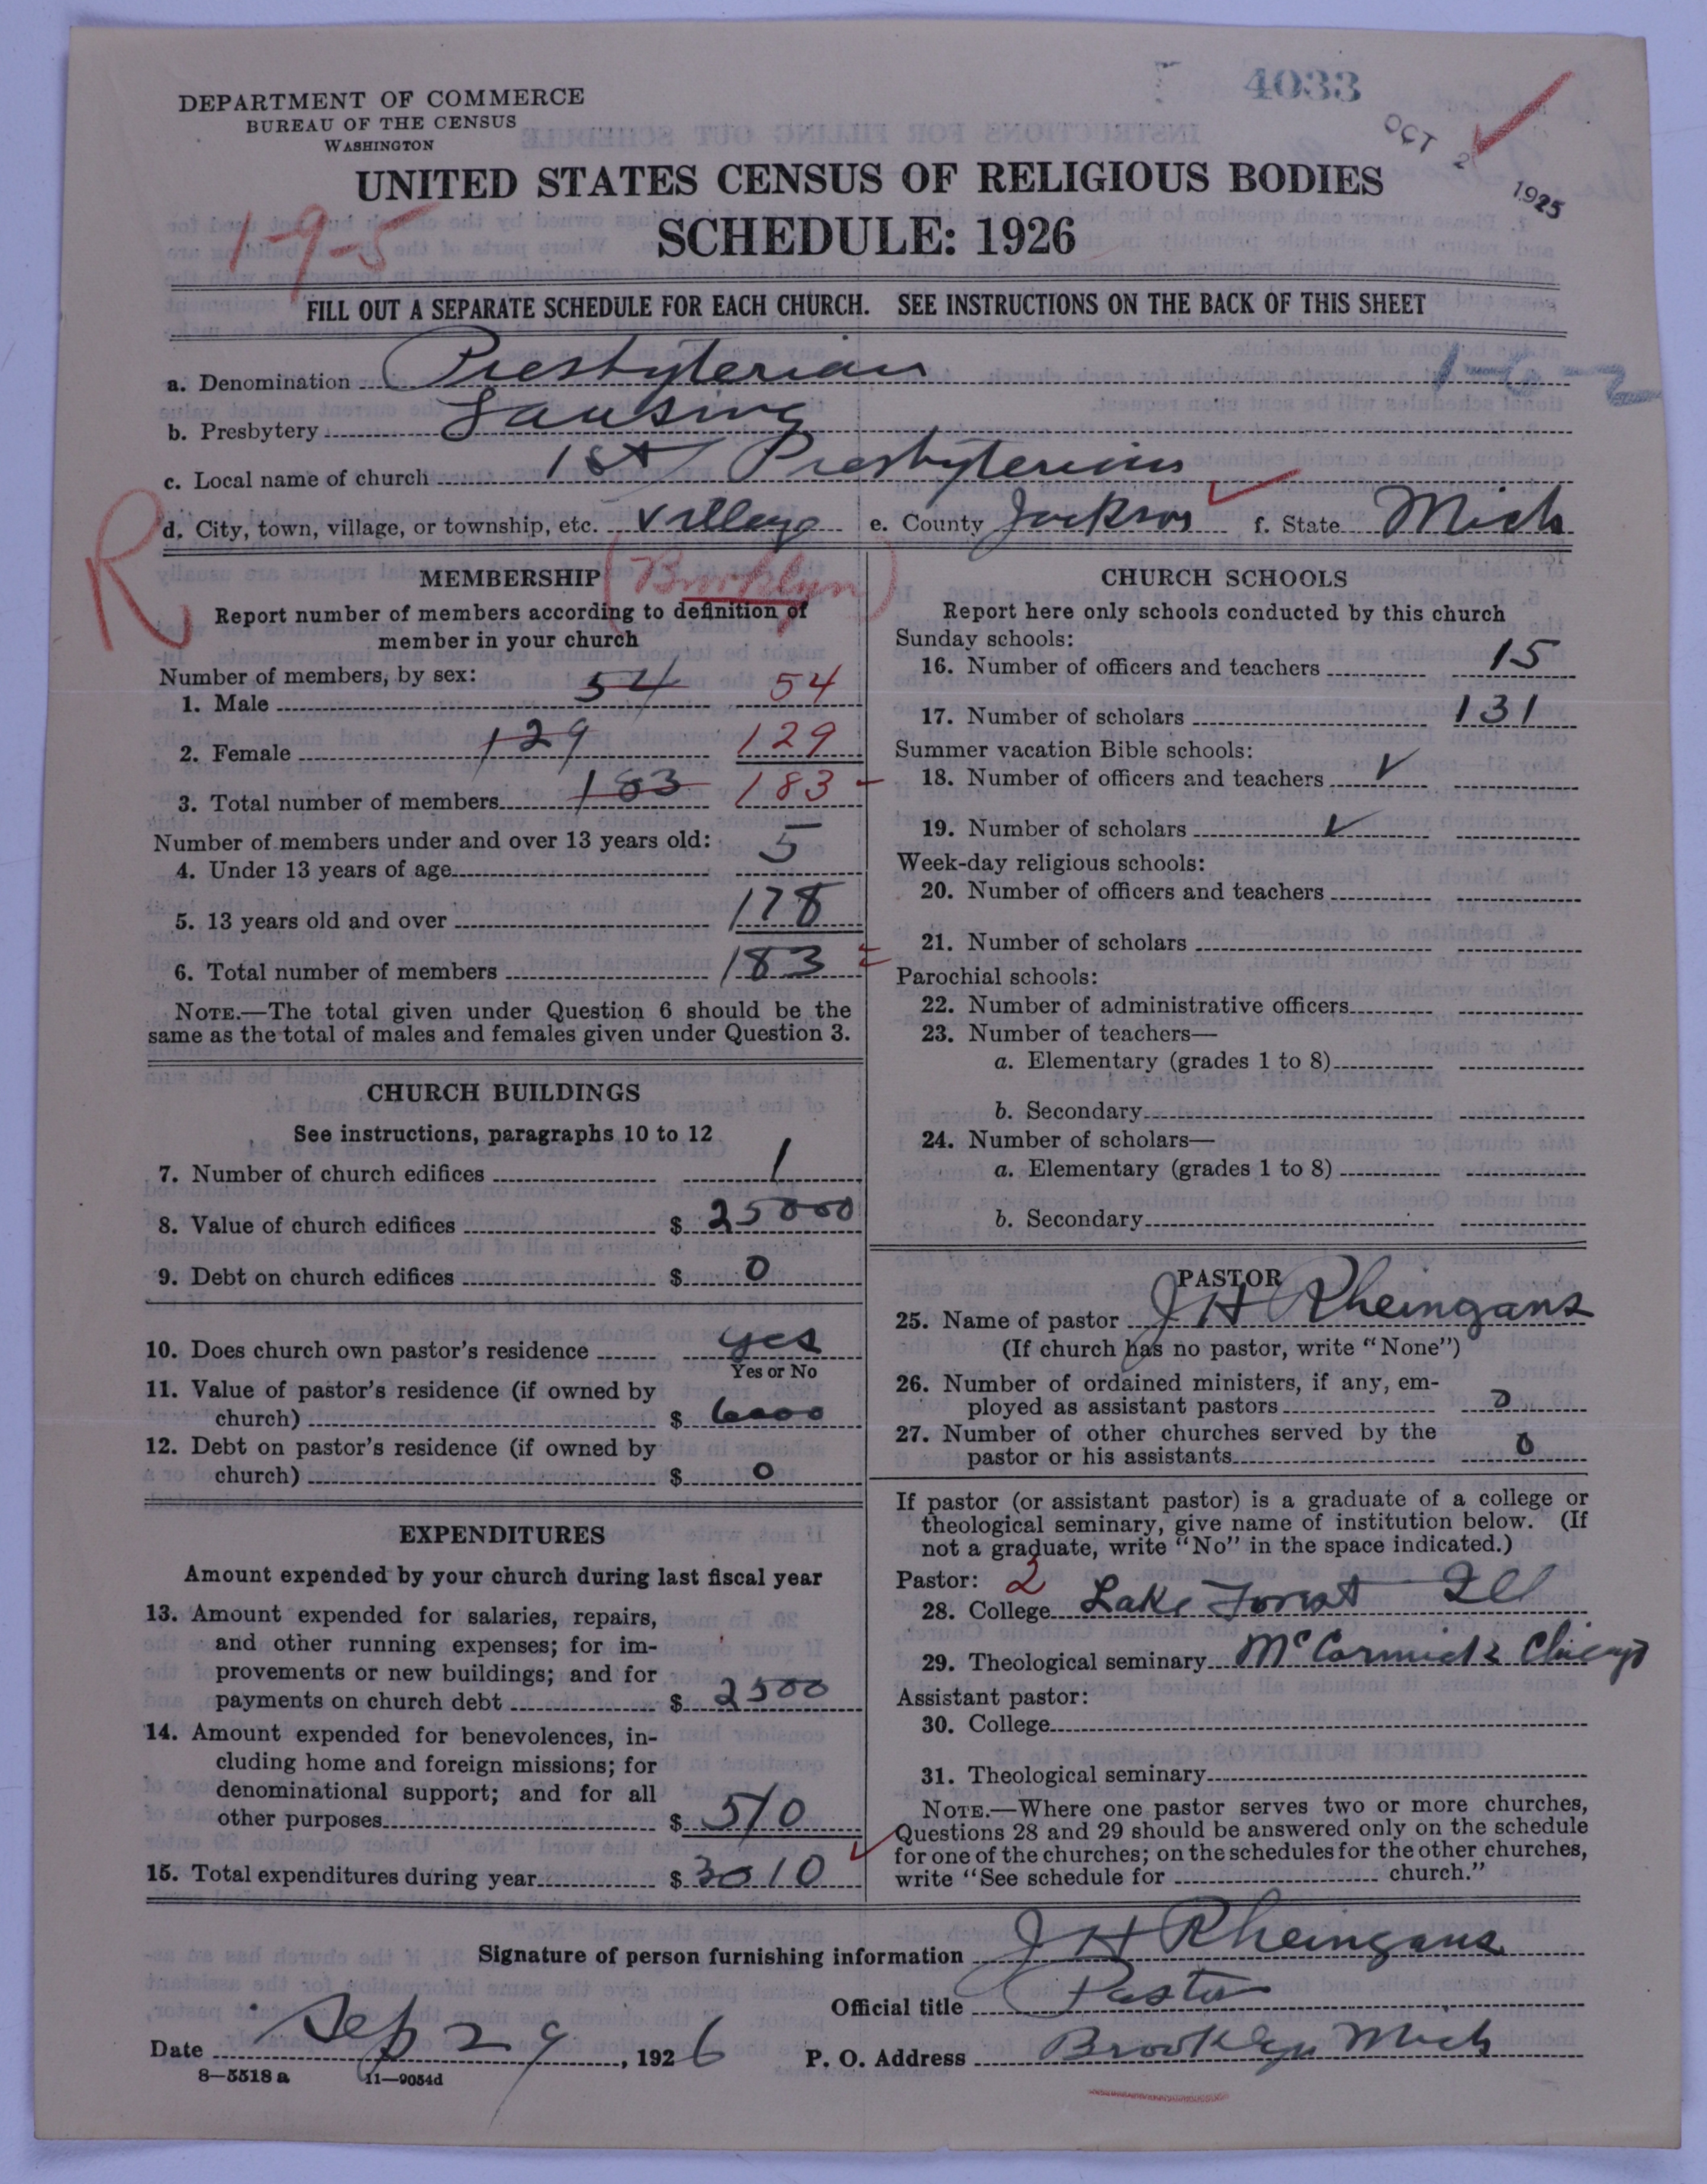 4033
OCT 2 1925
DEPARTMENT OF COMMERCE
BUREAU OF THE CENSUS
WASHINGTON
UNITED STATES CENSUS OF RELIGIOUS BODIES
SCHEDULE: 1926
1-9-5
FILL OUT A SEPARATE SCHEDULE FOR EACH CHURCH. SEE INSTRUCTIONS ON THE BACK OF THIS SHEET
a. Denomination Presbyterian
b. Presbytery Lansing
c. Local name of church 1st Presbyterian
d. City, town, village, or township, etc. Village e. County Jackson f. State Mich
R
(Brooklyn)
MEMBERSHIP
Report number of members according to definition of
member in your church
Number of members, by sex:
1. Male 54 54
2. Female 129 129
3. Total number of members 183 183
Number of members under and over 13 years old:
4. Under 13 years of age 5
5. 13 years old and over 178
6. Total number of members 183
NOTE.—The total given under Question 6 should be the
same as the total of males and females given under Question 3.
CHURCH BUILDINGS
See instructions, paragraphs 10 to 12
7. Number of church edifices 1
8. Value of church edifices $ 25000
9. Debt on church edifices $ 0
10. Does church own pastor's residence yes
Yes or No
11. Value of pastor's residence (if owned by
church) $ 6000
12. Debt on pastor's residence (if owned by
church) $ 0
EXPENDITURES
Amount expended by your church during last fiscal year
13. Amount expended for salaries, repairs,
and other running expenses; for im-
provements or new buildings; and for
payments on church debt $ 2500
14. Amount expended for benevolences, in-
cluding home and foreign missions; for
denominational support; and for all
other purposes $ 510
15. Total expenditures during year $ 3010
CHURCH SCHOOLS
Report here only schools conducted by this church
Sunday schools:
16. Number of officers and teachers 15
17. Number of scholars 131
Summer vacation Bible schools:
18. Number of officers and teachers ✓
19. Number of scholars ✓
Week-day religious schools:
20. Number of officers and teachers
21. Number of scholars
Parochial schools:
22. Number of administrative officers
23. Number of teachers—
a. Elementary (grades 1 to 8)
b. Secondary
24. Number of scholars—
a. Elementary (grades 1 to 8)
b. Secondary
PASTOR
25. Name of pastor J H Rheingans
(If church has no pastor, write "None")
26. Number of ordained ministers, if any, em-
ployed as assistant pastors 0
27. Number of other churches served by the
pastor or his assistants 0
If pastor (or assistant pastor) is a graduate of a college or
theological seminary, give name of institution below. (If
not a graduate, write "No" in the space indicated.)
Pastor: 2
28. College Lake Forest Ill
29. Theological seminary McCormick Chicago
Assistant pastor:
30. College
31. Theological seminary
NOTE.—Where one pastor serves two or more churches,
Questions 28 and 29 should be answered only on the schedule
for one of the churches; on the schedules for the other churches,
write "See schedule for church."
Signature of person furnishing information J H Rheingans
Official title Pastor
Date Sep 29, 1926 P. O. Address Brooklyn Mich
8—5518 a 11—9054d